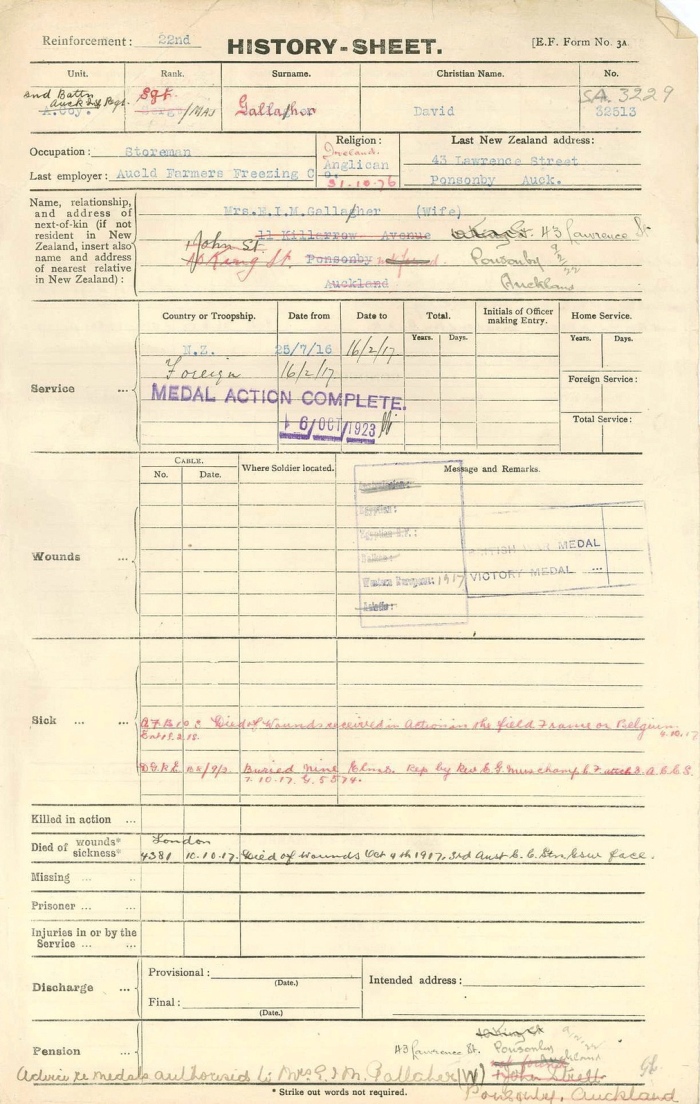 Reinforcement: 22nd
HISTORY-SHEET.
[E.F. Form No. 3A.
Unit. Rank. Surname. Christian Name. No.
2nd Battn Auck Inf Regt. Sgt. S.A. 3229
A.Coy. Gallaher David 32513
Occupation: Storeman
Last employer: Auckld Farmers Freezing Co.
Religion:
Ireland.
Anglican
31.10.76
Last New Zealand address:
43 Lawrence Street
Ponsonby Auck.
Name, relationship,
and address of
next-of-kin (if not
resident in New
Zealand, insert also
name and address
of nearest relative
in New Zealand):
Mrs.E.I.M.Gallaher (Wife)
11 Killarrow Avenue
43 Lawrence St.
John St.
King St. Ponsonby
Ponsonby 9/2/22
Auckland
Auckland
Country or Troopship. Date from Date to Total. Initials of Officer making Entry. Home Service.
Years. Days. Years. Days.
Service ...
N.Z. 25/7/16 16/2/17
Foreign 16/2/17
Foreign Service:
Total Service:
MEDAL ACTION COMPLETE.
6/OCT/1923
Cable. Where Soldier located. Message and Remarks.
No. Date.
Wounds ...
Egyptian:
Egyptian E.F.:
Balkan:
Western European: 1917
Asiatic:
BRITISH WAR MEDAL
VICTORY MEDAL ...
Sick ... ...
Died of Wounds received in Action in the field France or Belgium
4.10.17
Buried Nine Elms. Rep by Rev. E.G. Muschamp C.F. attchd 3. A.C.C.S.
Killed in action ...
Died of wounds* sickness*
London
4381 10.10.17. Died of Wounds Oct 4th 1917, 3rd Aust C.C. Stn Gsw face.
Missing ... ..
Prisoner ... ..
Injuries in or by the
Service ... ...
Discharge ...
Provisional:
(Date.)
Final:
(Date.)
Intended address:
Pension ...
43 Lawrence St. Ponsonby
Auckland
John Street
Ponsonby, Auckland
Advice re medals authorised to Mrs E I M. Gallaher (W)
* Strike out words not required.